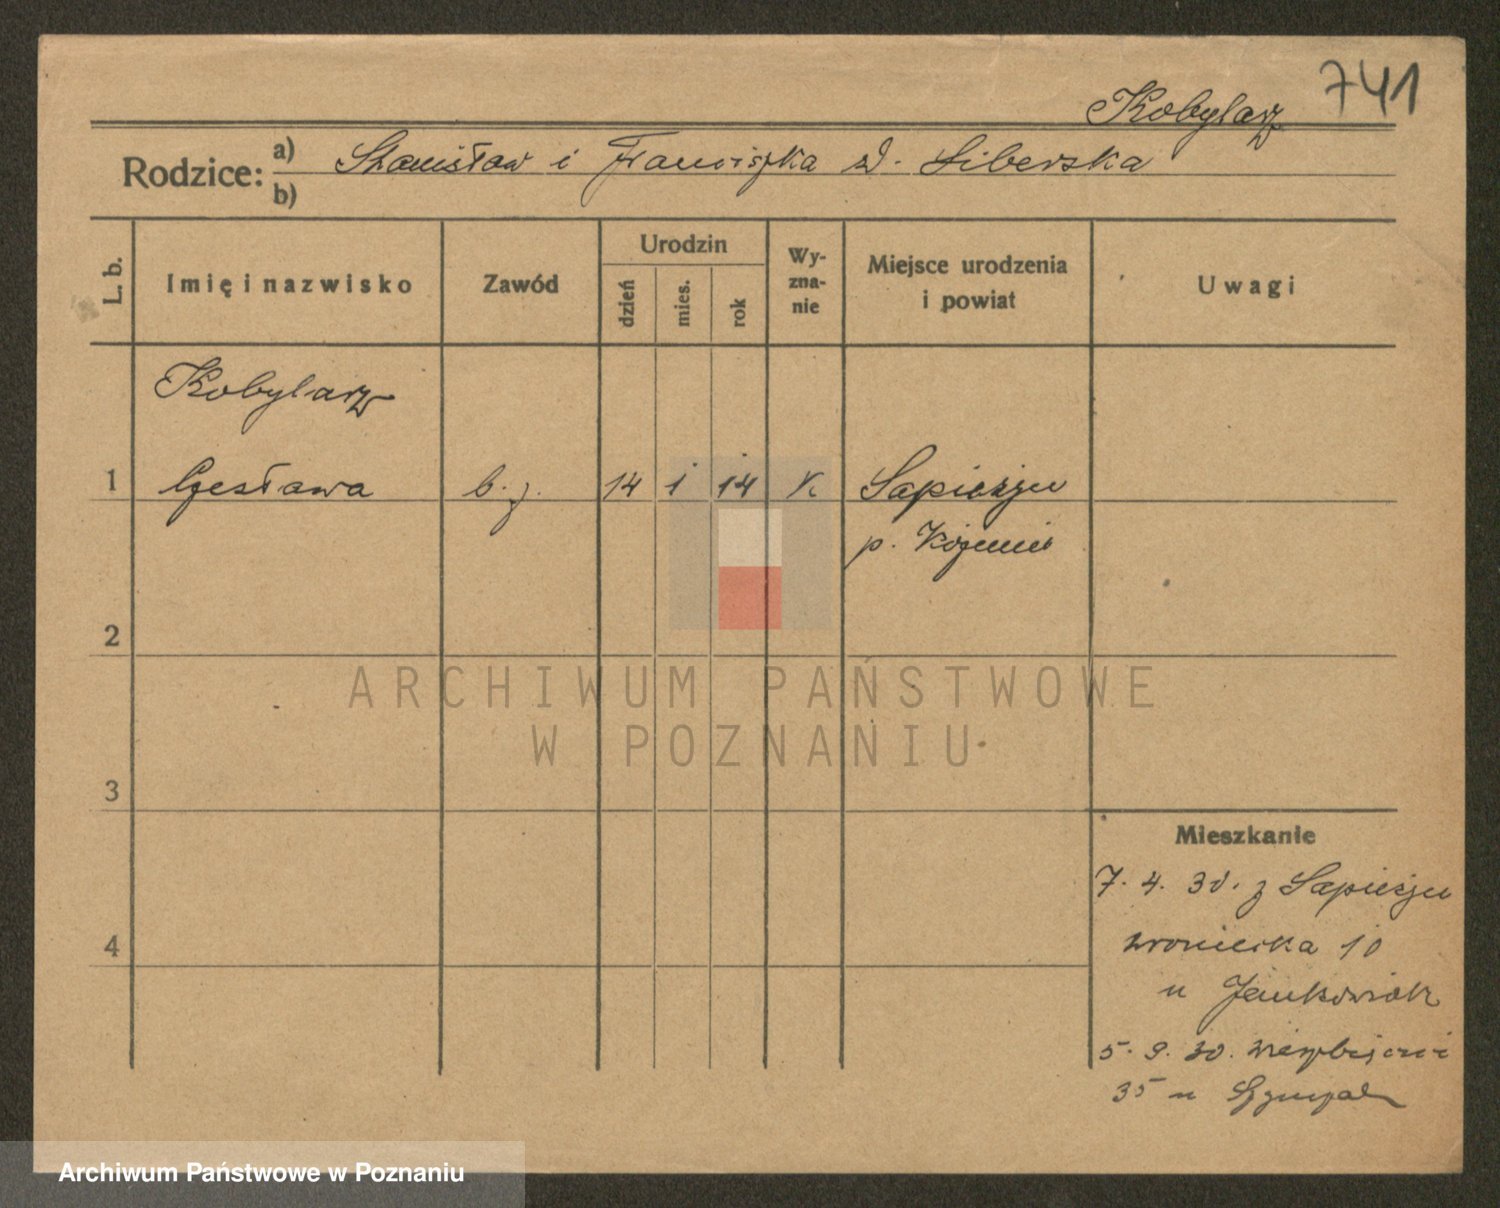 741
Kobylarz
Rodzice: a) Stanisław i Franciszka d. Liberska
b)
L. b.
Imię i nazwisko
Zawód
Urodzin
dzień
mies.
rok
Wy-
zna-
nie
Miejsce urodzenia
i powiat
Uwagi
Kobylarz
1 Czesława b. z. 14 1 14 K Sapieżyn
p. Koźmin
2
3
4
ARCHIWUM PAŃSTWOWE
W POZNANIU
Mieszkanie
7. 4. 30. z Sapieżyn
Wroniecka 10
u Jankowiak
5. 9. 30. Wierzbięcice
35 u
Archiwum Państwowe w Poznaniu